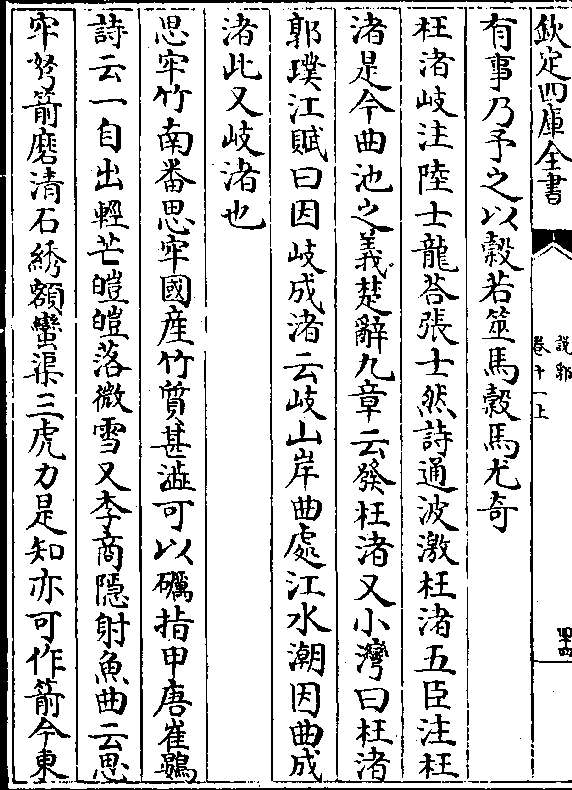 欽定四庫全書
說郛
卷十一上
四十四
有事乃予之以縠若筮馬縠馬尤奇
枉渚岐注陸士龍荅張士然詩通波激枉渚五臣注枉
渚是今曲池之義楚辭九章云發枉渚又小灣曰枉渚
郭璞江賦曰因岐成渚云岐山岸曲處江水潮因曲成
渚此又岐渚也
思牢竹南番思牢國産竹質甚澁可以礪指甲唐崔鷃
詩云一自出輕芒皚皚落微雪又李商隱射魚曲云思
牢弩箭磨清石綉額蠻渠三虎力是知亦可作箭今東